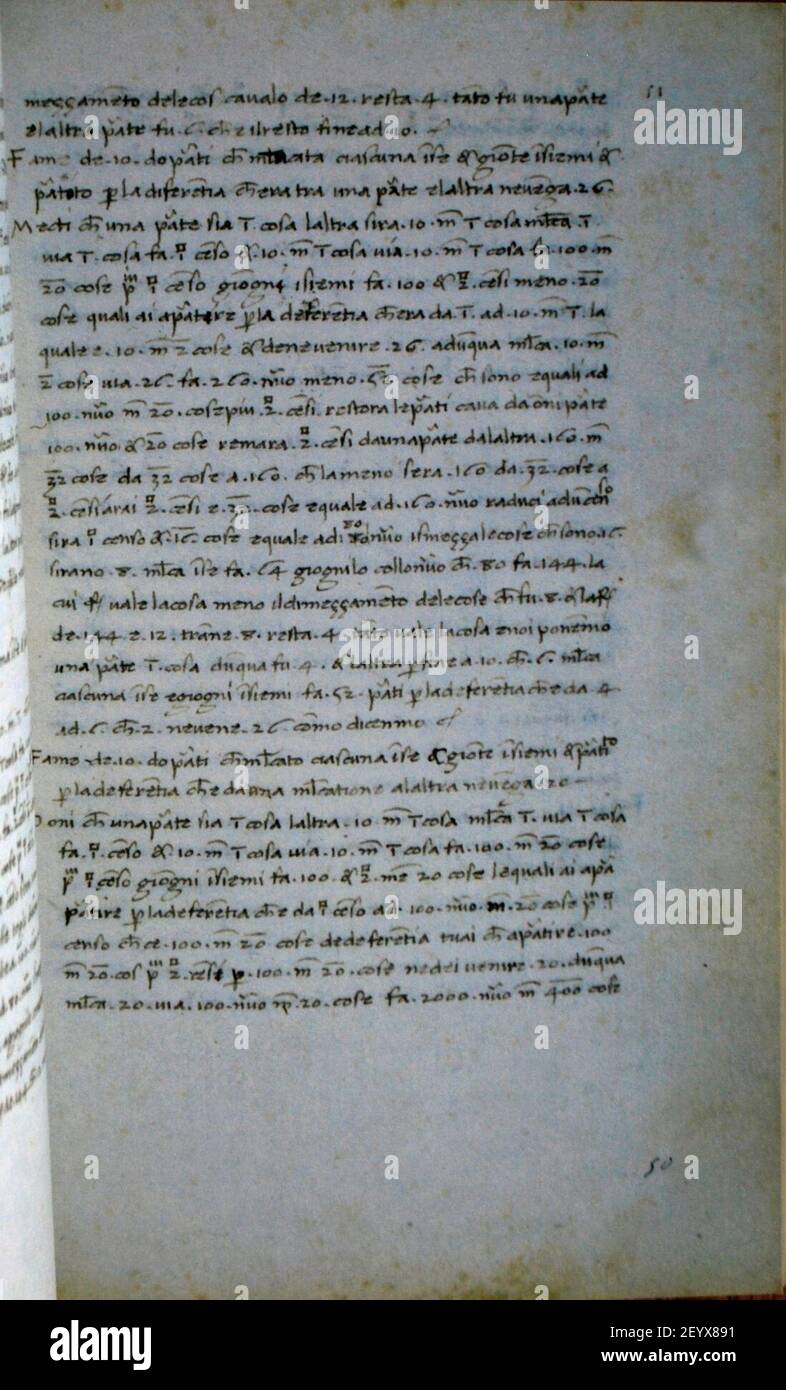 51
meççamēto delecos cavalo de .12. resta .4. tāto fu una pāte
elaltra pāte fu .6. ch̄ e ilresto fine ad .10.
Fame de .10. do pāti ch̄ ciascuna ī se & giōte īsiemi &
p la diferētia ch̄ era tra una pāte elaltra nevēga .26.
Mecti ch̄ una pāte sia T. cosa laltra sira .10. m̄ T cosa mlca .T.
via T. cosa fa .1. cēso & .10. m̄ T cosa via .10. m̄ T cosa fa .100. m̄
20 cose p 1 cēso giōgni īsiemi fa .100 & 2. cēsi meno .20
cose quali ai apātire p la deferētia ch̄ era da .T. ad .10. m̄ T. la
quale e .10. m̄ 2 cose & dene venire .26. adūqua mlca .10. m̄
2 cose via .26. fa .260. nūo meno .52. cose ch̄ sono equali ad
100. nūo m̄ 20. cose piu .2. cēsi. restora le pāti cava da ōni pāte
100. nūo & 20 cose remara .2. cēsi da una pāte da laltra .160. m̄
32 cose da 32 cose a .160. ch̄ la meno sera .160 da .32. cose a
2. cēsi arai 2. cēsi e .32. cose equale ad .160. nūo raduci ad ū cēso
sira 1 censo & .16. cose equale ad 80 nūo ismeçça le cose ch̄ sono .16.
sirano .8. mlca ī se fa .64 giognilo collo nūo ch̄ .80 fa .144. la
cui vale la cosa meno il dimeççamēto dele cose ch̄ fu .8. & la
de .144 e .12. trāne .8. resta .4 tāto vale la cosa e noi ponēmo
una pāte T. cosa dūqua fu .4. & laltra p fine a .10. ch̄ .6. mlca
ciascuna ī se e giogni īsiemi fa .52. pāti p la deferētia ch̄ e da 4
ad .6. ch̄ .2. ne vene .26 cōmo dicēmo
Fame de .10. do pāti ch̄ mlcato ciascuna ī se & giōte īsiemi & pātito
p la deferētia ch̄ e da una mlcatione alaltra ne vēga .20
Poni ch̄ una pāte sia T cosa laltra .10 m̄ T cosa mlca T. via T cosa
fa .1. cēso & .10. m̄ T cosa via .10. m̄ T cosa fa .100. m̄ 20 cose
p 1 cēso giōgni īsiemi fa .100. & 2. mē 20 cose lequali ai apā
pātire p la deferētia ch̄ e da 1 cēso ad .100. nūo .m̄. 20 cose p 1
censo ch̄ e .100. m̄ 20 cose de deferētia tu ai ch̄ apātire .100
m̄ 20. cos p 2. cēsi p .100. m̄ 20. cose ne dei venire .20. dūqua
mlca .20. via .100. nūo m̄ .20. cose fa .2000. nūo m̄ 400 cose
50
alamy
Image ID: 2EYX891
www.alamy.com